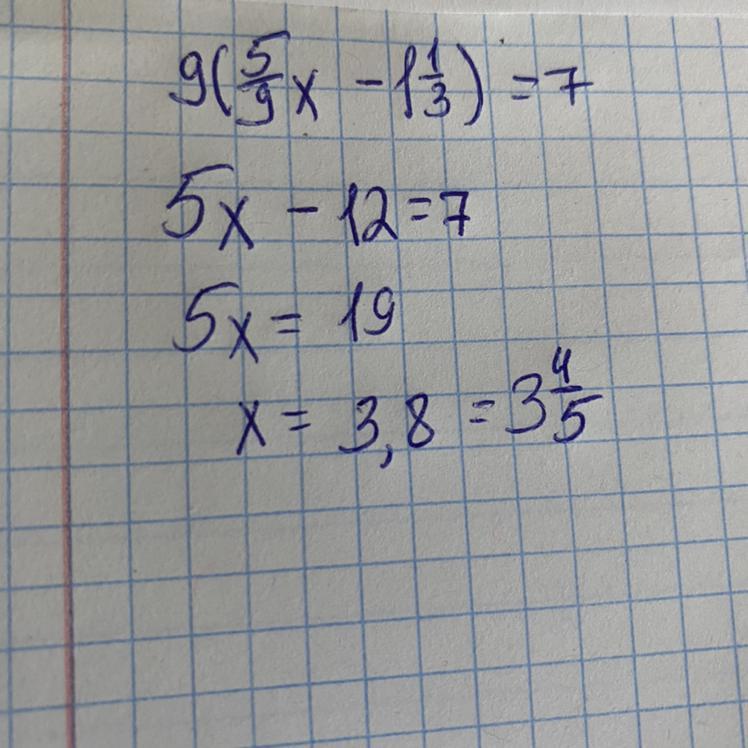 9(5/9x - 1 1/3) = 7
5x - 12 = 7
5x = 19
x = 3,8 = 3 4/5